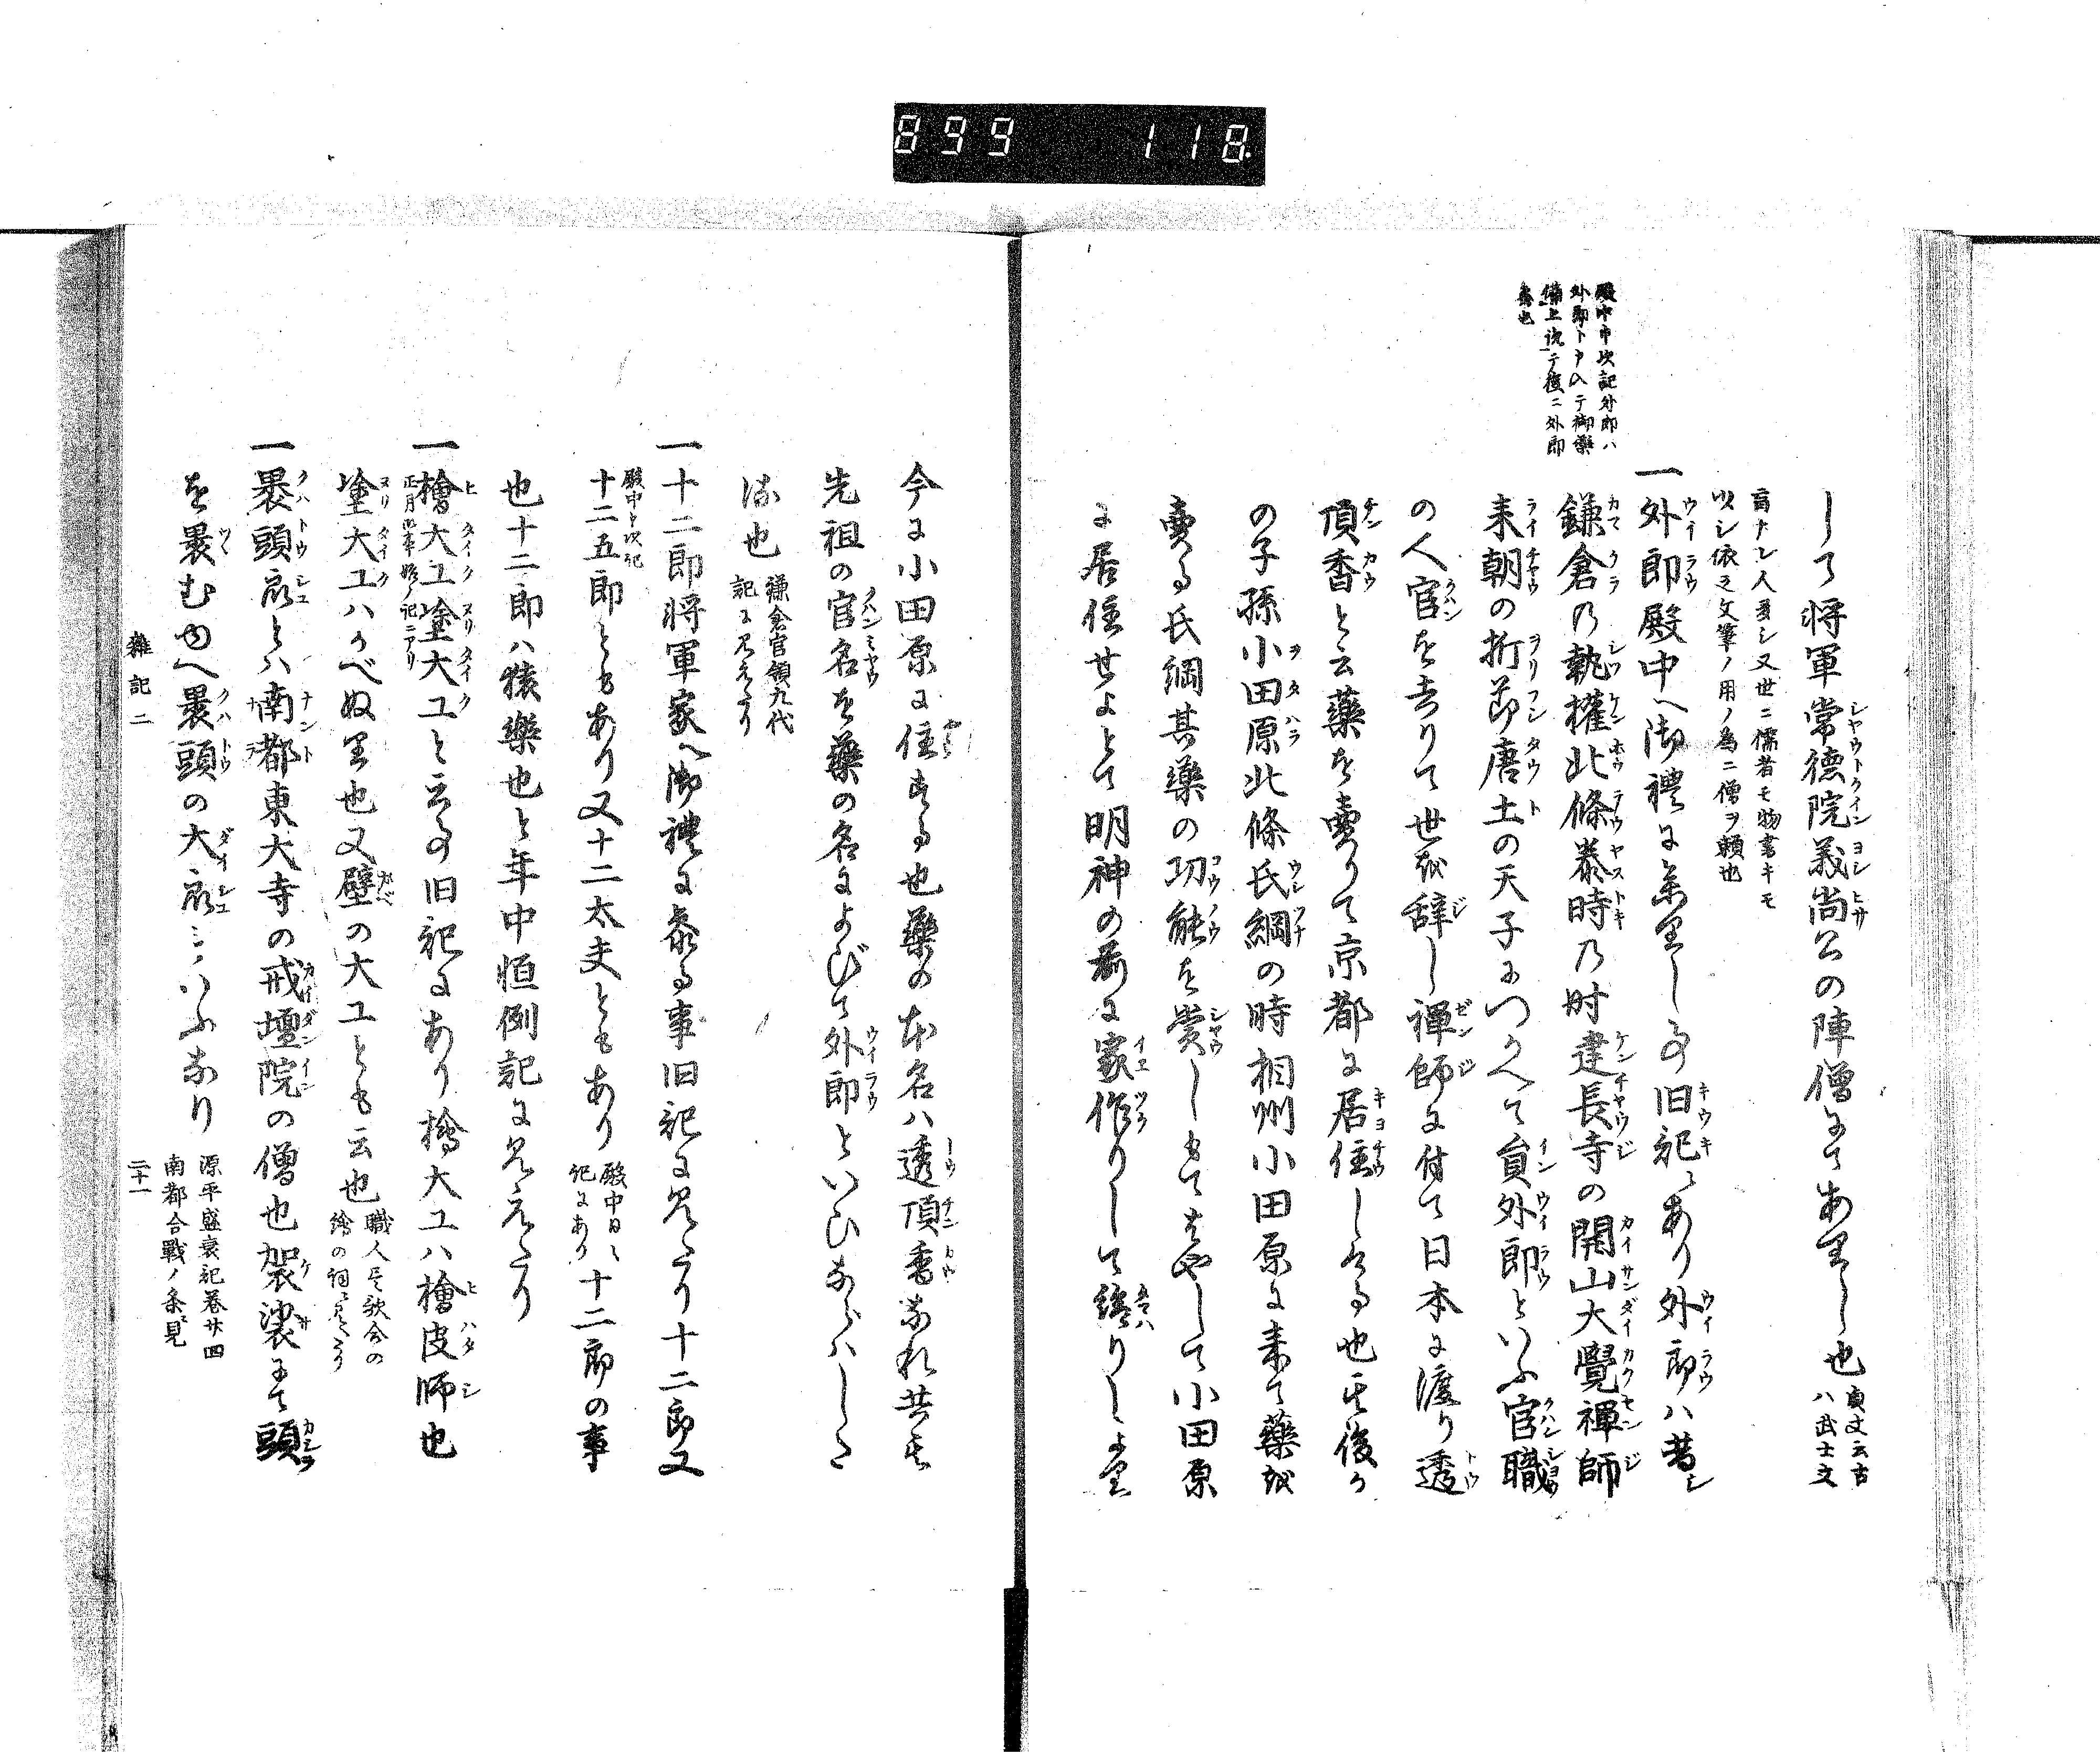 899 118
殿中申次記外郎ハ
外郎ト申入テ御薬
備上後ニ外郎
して将軍常徳院義尚公の陣僧にてあり之也 貞丈云古ハ武士文
盲ナシ人多シ又世ニ儒者モ物書キモ
少シ依之文筆ノ用ノ為ニ僧ヲ頼也
一外郎殿中へ御禮に参りし事旧記ニあり外郎ハ昔シ
鎌倉乃執權北條泰時乃時建長寺の開山大覺禅師
来朝の折節唐土の天子につかへて員外郎といふ官職
の人官を去りて世を辞し禅師に付て日本に渡り透
頂香と云藥を賣りて京都に居住しける也其後か
の子孫小田原北條氏綱の時相州小田原に来て藥を
賣る氏綱其藥の功能を賞しもてはやして小田原
に居住せよとて明神の前に家作りして給りしより
今に小田原に住する也藥の本名ハ透頂香なれ共其
先祖の官名を藥の名によびて外郎といひならハした
る也 鎌倉官領九代記に見えたり
一十二郎将軍家へ御禮に参る事旧記に見えたり十二郎又
殿中申次記
十二五郎ともあり又十二太夫ともあり 殿中日々記にあり 十二郎の事
也十二郎ハ猿樂也と年中恒例記に見えたり
一檜大工塗大工と云事旧記にあり檜大工ハ檜皮師也
正月御事始ノ記ニアリ
塗大工ハかべぬり也又壁の大工とも云也 職人尽歌合の繪の詞に見えたり
一裹頭衆とハ南都東大寺の戒壇院の僧也袈裟にて頭
を裹むゆへ裹頭の大衆といふなり 源平盛衰記巻廿四南都合戰ノ条ニ見
雑記二
二十一